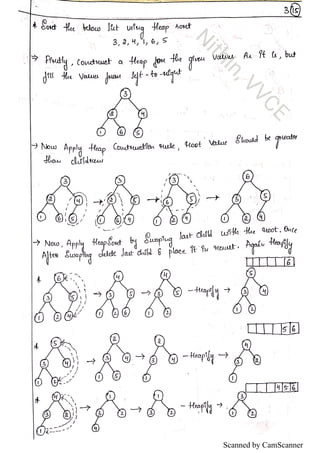 3 15
* Sort the below list using heap sort
3, 2, 4, 1, 6, 5
→ Firstly, construct a heap for the given values As it is, but
fill the values from left-to-right
3
2 4
1 6 5
→ Now Apply Heap Construction rule, Root value should be greater
than children
3 → 3 → 3 → 6
2 4 2 5 6 5 3 5
1 6 5 1 6 4 1 2 4 1 2 4
→ Now, Apply HeapSort by Swaping last child with the root, Once
After Swaping delete last child & place it in result. Again Heapify
6
* 6 → 4 → 4 - Heapify → 5
3 5 3 5 3 5 3 4
1 2 4 1 2 6 1 2 1 2
5 6
* 5 → 2 → 2 - Heapify → 4
3 4 3 4 3 4 3 2
1 2 1 5 1 1
4 5 6
* 4 → 1 → 1 - Heapify → 3
3 2 3 2 3 2 1 2
1 4
Nithin, VVCE
Scanned by CamScanner